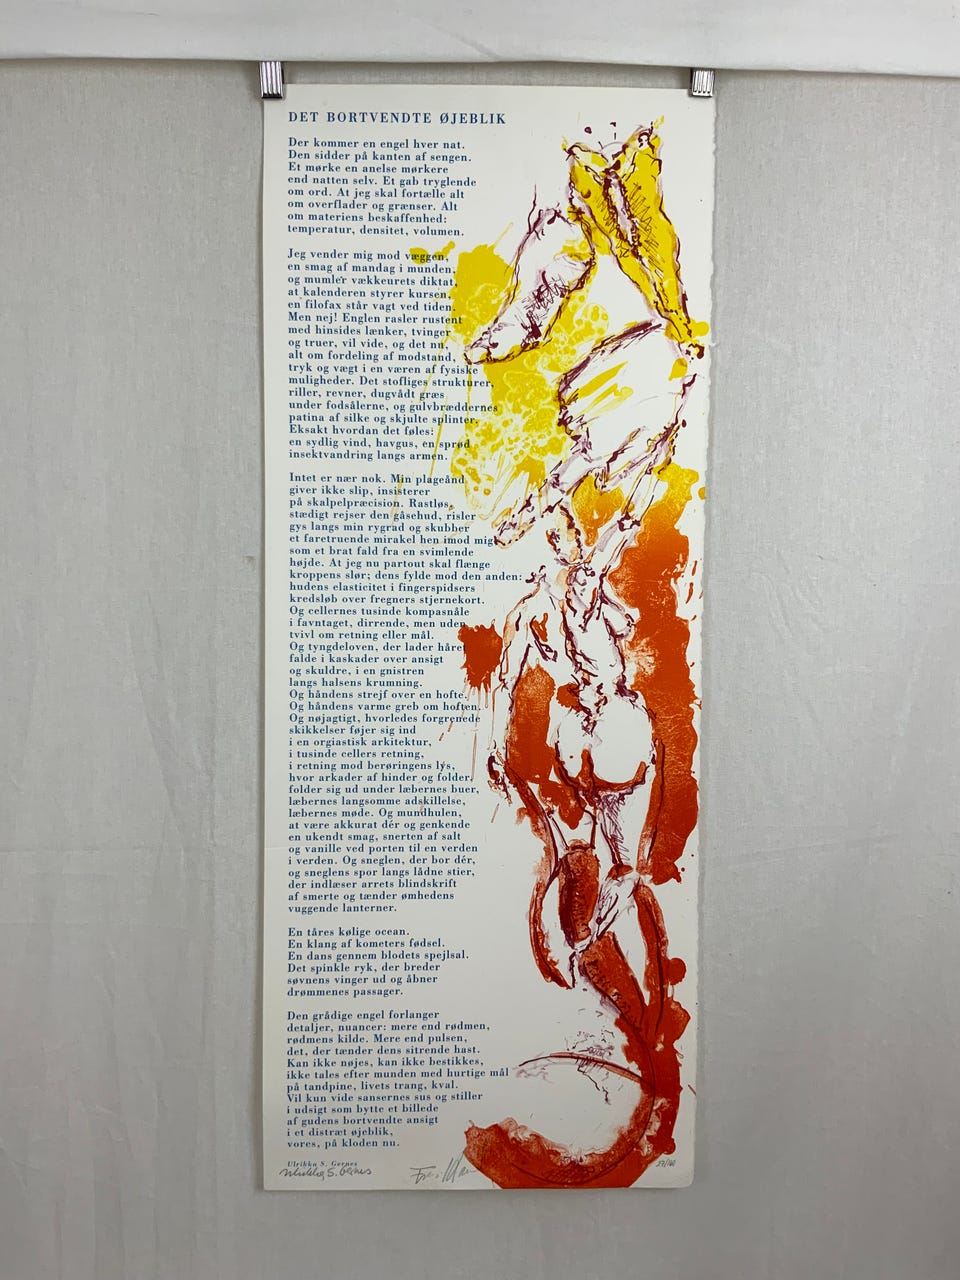 DET BORTVENDTE ØJEBLIK
Der kommer en engel hver nat.
Den sidder på kanten af sengen.
Et mørke en anelse mørkere
end natten selv. Et gab tryglende
om ord. At jeg skal fortælle alt
om overflader og grænser. Alt
om materiens beskaffenhed:
temperatur, densitet, volumen.
Jeg vender mig mod væggen,
en smag af mandag i munden,
og mumler vækkeurets diktat,
at kalenderen styrer kursen,
en filofax står vagt ved tiden.
Men nej! Englen rasler rustent
med hinsides lænker, tvinger
og truer, vil vide, og det nu,
alt om fordeling af modstand,
tryk og vægt i en væren af fysiske
muligheder. Det stofliges strukturer,
riller, revner, dugvådt græs
under fodsålerne, og gulvbræddernes
patina af silke og skjulte splinter.
Eksakt hvordan det føles:
en sydlig vind, havgus, en sprød
insektvandring langs armen.
Intet er nær nok. Min plageånd
giver ikke slip, insisterer
på skalpelpræcision. Rastløs,
stædigt rejser den gåsehud, risler
gys langs min rygrad og skubber
et faretruende mirakel hen imod mig
som et brat fald fra en svimlende
højde. At jeg nu partout skal flænge
kroppens slør; dens fylde mod den anden:
hudens elasticitet i fingerspidsers
kredsløb over fregners stjernekort.
Og cellernes tusinde kompasnåle
i favntaget, dirrende, men uden
tvivl om retning eller mål.
Og tyngdeloven, der lader håret
falde i kaskader over ansigt
og skuldre, i en gnistren
langs halsens krumning.
Og håndens strejf over en hofte.
Og håndens varme greb om hoften.
Og nøjagtigt, hvorledes forgrenede
skikkelser føjer sig ind
i en orgiastisk arkitektur,
i tusinde cellers retning,
i retning mod berøringens lys,
hvor arkader af hinder og folder,
folder sig ud under læbernes buer,
læbernes langsomme adskillelse,
læbernes møde. Og mundhulen,
at være akkurat dér og genkende
en ukendt smag, snerten af salt
og vanille ved porten til en verden
i verden. Og sneglen, der bor dér,
og sneglens spor langs lådne stier,
der indlæser arrets blindskrift
af smerte og tænder ømhedens
vuggende lanterner.
En tåres kølige ocean.
En klang af kometers fødsel.
En dans gennem blodets spejlsal.
Det spinkle ryk, der breder
søvnens vinger ud og åbner
drømmenes passager.
Den grådige engel forlanger
detaljer, nuancer: mere end rødmen,
rødmens kilde. Mere end pulsen,
det, der tænder dens sitrende hast.
Kan ikke nøjes, kan ikke bestikkes,
ikke tales efter munden med hurtige mål
på tandpine, livets trang, kval.
Vil kun vide sansernes sus og stiller
i udsigt som bytte et billede
af gudens bortvendte ansigt
i et distræt øjeblik,
vores, på kloden nu.
Ulrikka S. Gernes
Ulrikka S. Gernes